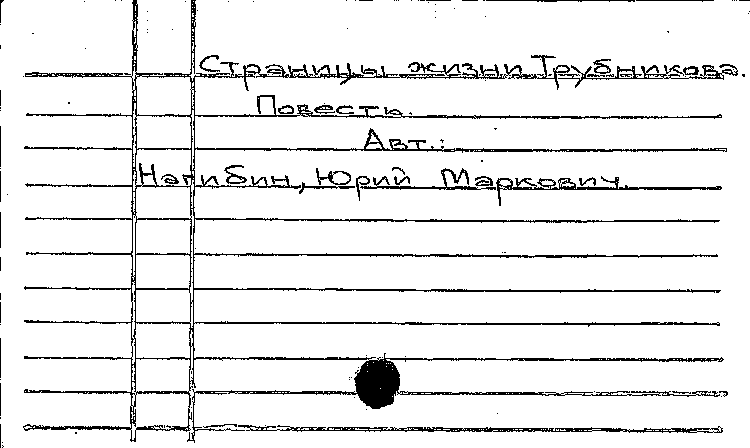 Страницы жизни Трубникова.
Повесть.
Авт.:
Нагибин, Юрий Маркович.